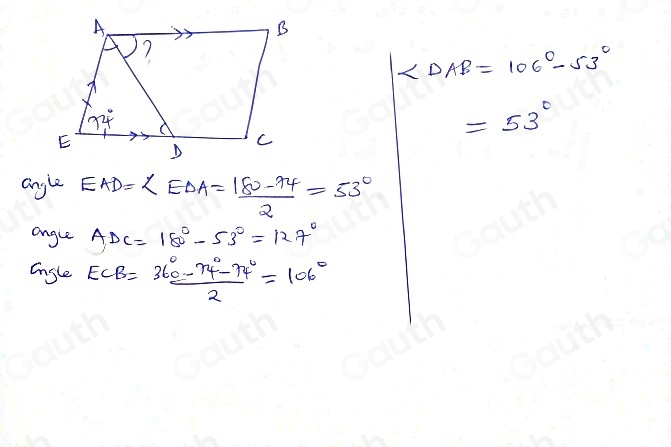 A
B
?
74°
E
D
C
angle EAD = ∠ EDA = (180 - 74)/2 = 53°
angle ADC = 180° - 53° = 127°
angle ECB = (360° - 74° - 74°)/2 = 106°
∠ DAB = 106° - 53°
= 53°
Gauth